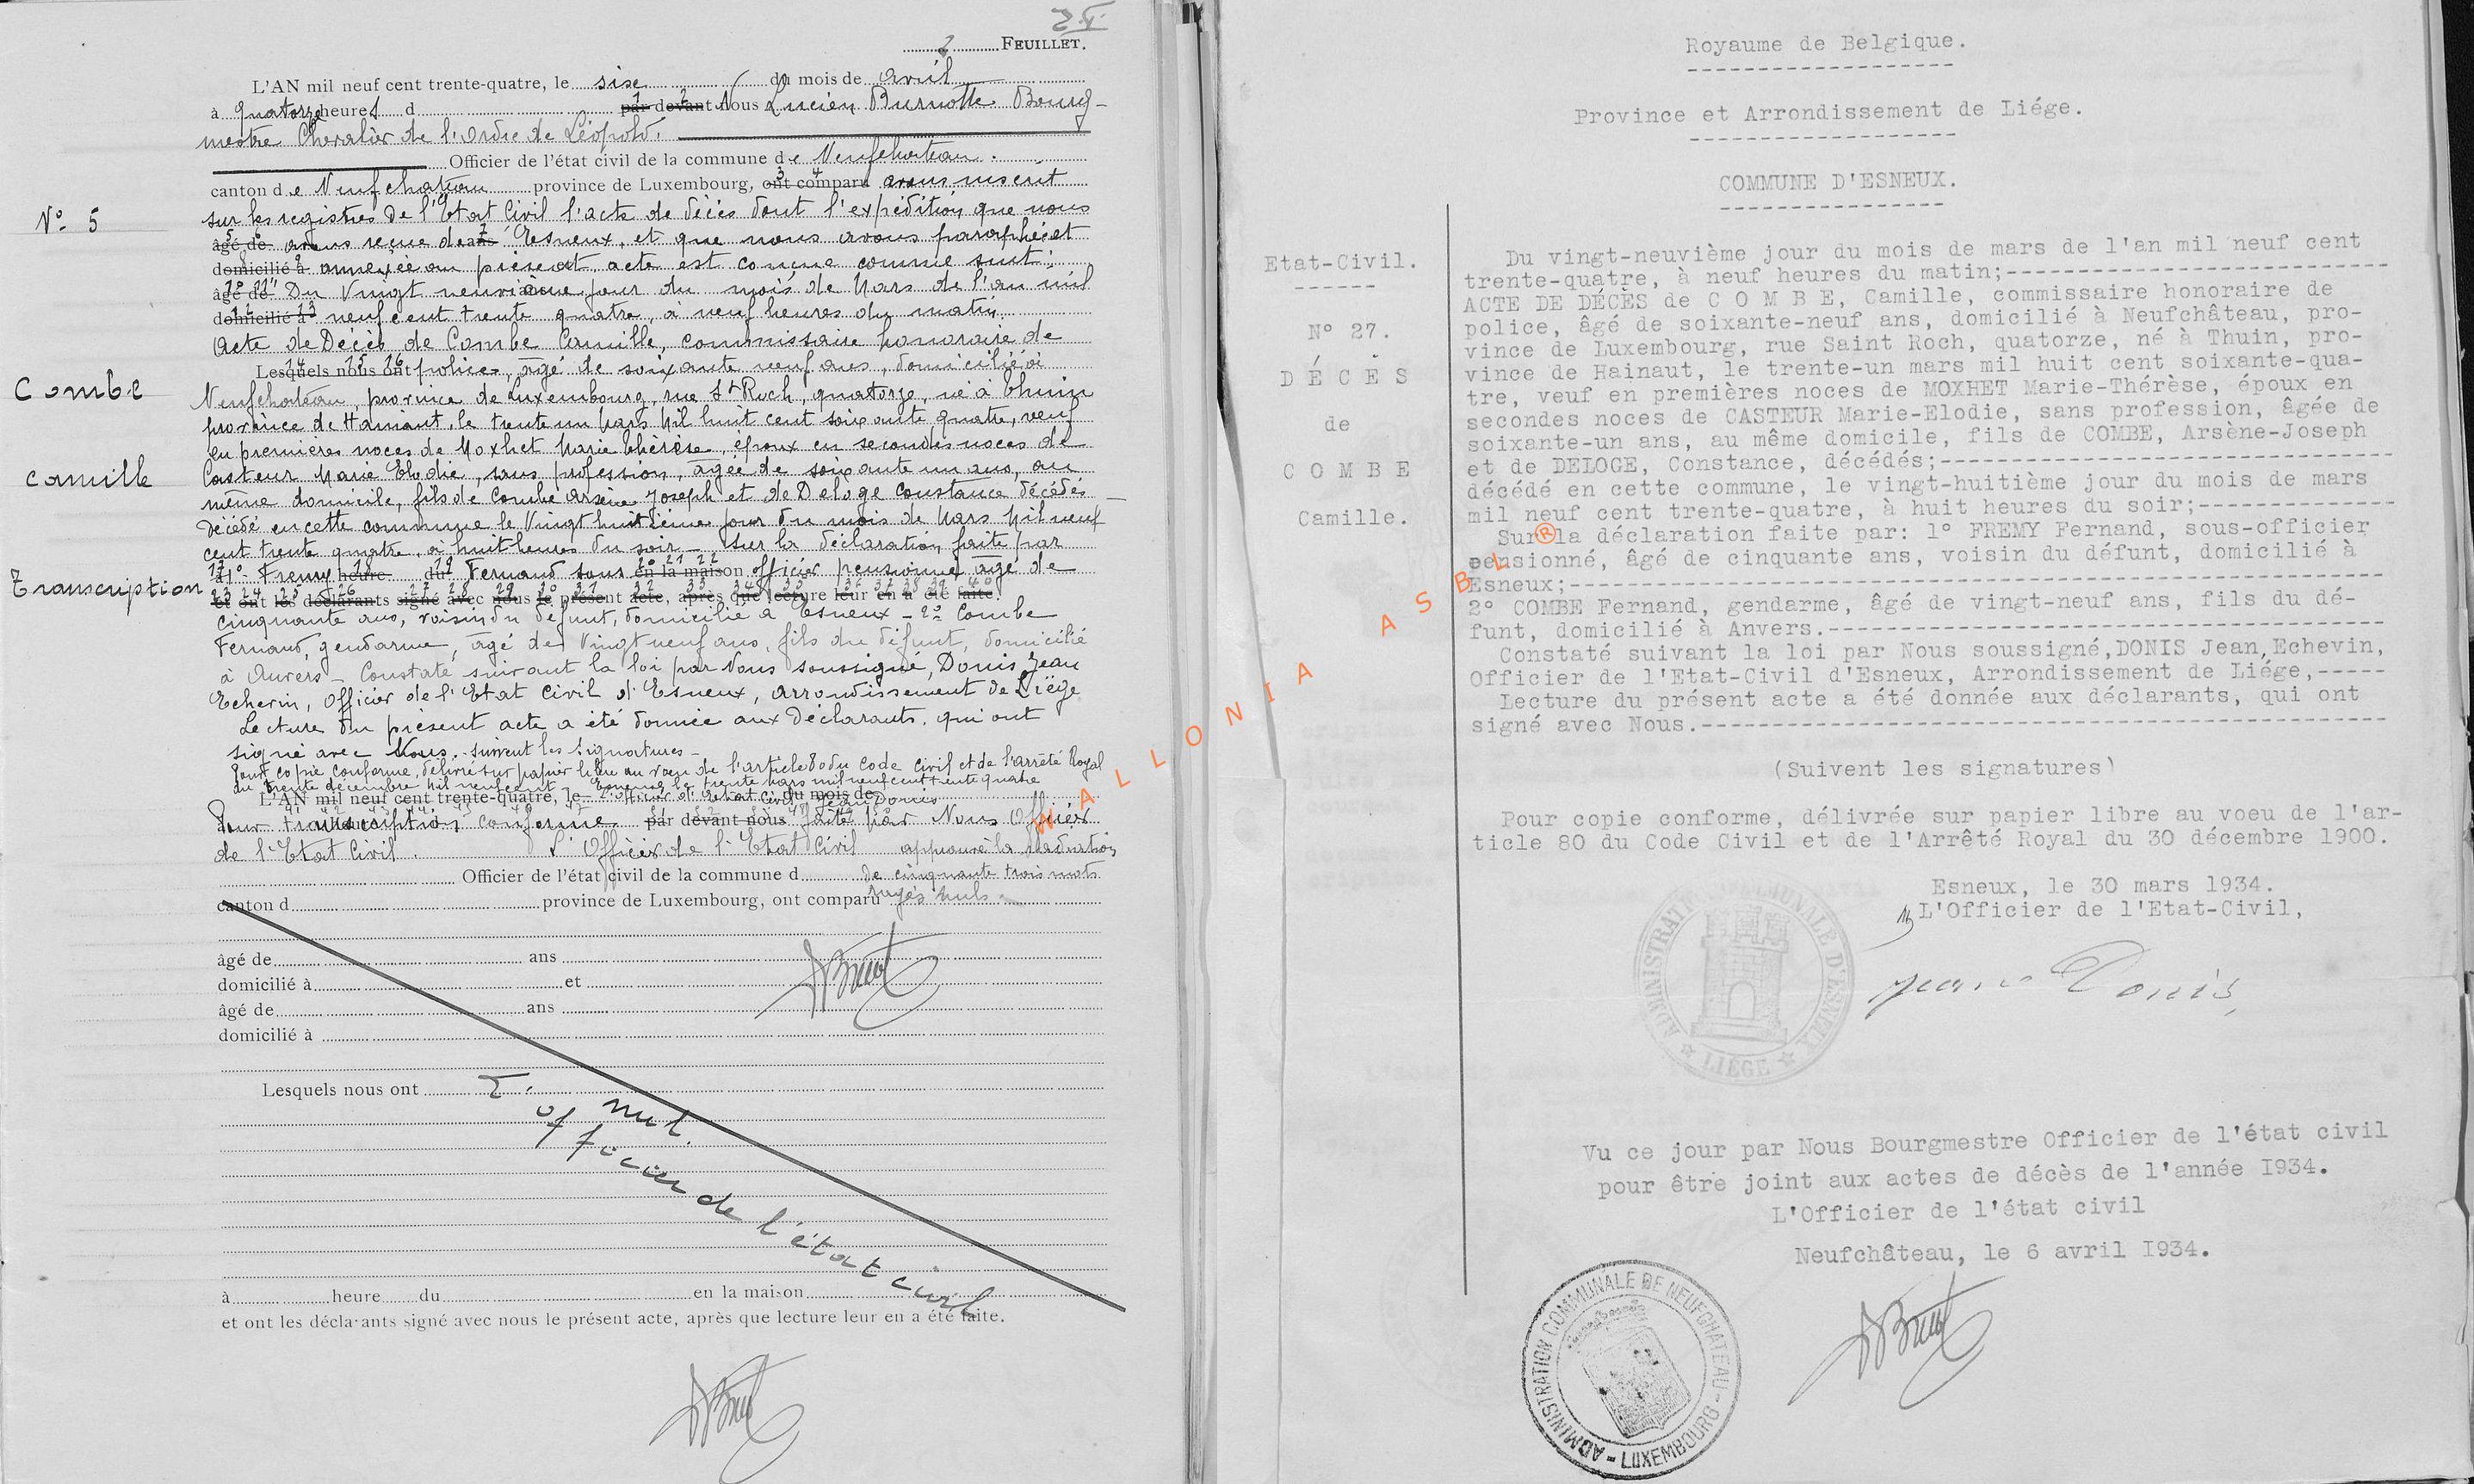 2
FEUILLET.
L'AN mil neuf cent trente-quatre, le sixe du mois de avril
à quatorze heures d par devant Nous Lucien Burnotte Bourg-
mestre Chevalier de l'ordre de Léopold.
Officier de l'état civil de la commune de Neufchateau.
canton de Neufchateau province de Luxembourg, ont comparu avons inscrit
N° 5
sur les registres de l'Etat Civil l'acte de décès dont l'expédition que nous
âgé de avons reçue de ans Esneux, et que nous avons paraphée et
domicilié à annexée au présent acte est conçue comme suit:
âgé de Du Vingt neuvième jour du mois de Mars de l'an mil
domicilié à neuf cent trente quatre, à neuf heures du matin.
Acte de Décès de Combe Camille, commissaire honoraire de
Lesquels nous ont police, âgé de soixante neuf ans, domicilié à
Combe
Neufchateau, province de Luxembourg, rue St Roch, quatorze, né à Thuin
province de Hainaut, le trente un Mars Mil huit cent soixante quatre, veuf
en premières noces de Moxhet Marie Thérèse, époux en secondes noces de
Camille
Casteur Marie Elodie, sans profession, âgée de soixante un ans, au
même domicile, fils de Combe Arsène Joseph et de Deloge Constance décédés
Décédé en cette commune le Vingt huitième jour du mois de Mars Mil neuf
cent trente quatre, à huit heures du soir - Sur la déclaration faite par
1° Fremy heure du Fernand sous en la maison officier pensionné âgé de
Transcription
et ont les déclarants signé avec nous le présent acte, après que lecture leur en a été faite.
cinquante ans, voisin du défunt, domicilié à Esneux - 2° Combe
Fernand, gendarme, âgé de Vingt neuf ans, fils du défunt, domicilié
à Anvers - Constaté suivant la loi par Nous soussigné, Donis, Jean
Echevin, Officier de l'Etat Civil d'Esneux, arrondissement de Liège
Lecture du présent acte a été donnée aux Déclarants, qui ont
signé avec Nous. - Suivent les Signatures -
Pour copie conforme, délivré sur papier libre au voeu de l'article 80 du Code Civil et de l'arrêté Royal
du trente décembre Mil neuf cent Esneux le trente Mars mil neuf cent trente quatre
L'AN mil neuf cent trente-quatre, le L'officier de l'Etat Civil du mois de Jean Donis
Pour transcription conforme par devant nous faite par Nous Officier
de l'Etat Civil. L'Officier de l'Etat Civil approuvé la radiation
Officier de l'état civil de la commune d de cinquante trois mots
canton d province de Luxembourg, ont comparu rayés nuls.
âgé de ans
domicilié à et
âgé de ans
domicilié à
Lesquels nous ont
nul.
officier de l'état civil
à heure du en la maison
et ont les déclarants signé avec nous le présent acte, après que lecture leur en a été faite.
Royaume de Belgique.
Province et Arrondissement de Liége.
COMMUNE D'ESNEUX.
Etat-Civil.
N° 27.
DÉCÈS
de
COMBE
Camille.
Du vingt-neuvième jour du mois de mars de l'an mil neuf cent
trente-quatre, à neuf heures du matin;---------------------------
ACTE DE DÉCÈS de C O M B E, Camille, commissaire honoraire de
police, âgé de soixante-neuf ans, domicilié à Neufchâteau, pro-
vince de Luxembourg, rue Saint Roch, quatorze, né à Thuin, pro-
vince de Hainaut, le trente-un mars mil huit cent soixante-qua-
tre, veuf en premières noces de MOXHET Marie-Thérèse, époux en
secondes noces de CASTEUR Marie-Elodie, sans profession, âgée de
soixante-un ans, au même domicile, fils de COMBE, Arsène-Joseph
et de DELOGE, Constance, décédés;--------------------------------
décédé en cette commune, le vingt-huitième jour du mois de mars
mil neuf cent trente-quatre, à huit heures du soir;--------------
Sur la déclaration faite par: 1° FREMY Fernand, sous-officier
pensionné, âgé de cinquante ans, voisin du défunt, domicilié à
Esneux;----------------------------------------------------------
2° COMBE Fernand, gendarme, âgé de vingt-neuf ans, fils du dé-
funt, domicilié à Anvers.----------------------------------------
Constaté suivant la loi par Nous soussigné, DONIS Jean, Echevin,
Officier de l'Etat-Civil d'Esneux, Arrondissement de Liége,-----
Lecture du présent acte a été donnée aux déclarants, qui ont
signé avec Nous.-------------------------------------------------
(Suivent les signatures)
Pour copie conforme, délivrée sur papier libre au voeu de l'ar-
ticle 80 du Code Civil et de l'Arrêté Royal du 30 décembre 1900.
Esneux, le 30 mars 1934.
L'Officier de l'Etat-Civil,
Jean Donis
ADMINISTRATION COMMUNALE D'ESNEUX
LIÉGE
Vu ce jour par Nous Bourgmestre Officier de l'état civil
pour être joint aux actes de décès de l'année I934.
L'Officier de l'état civil
Neufchâteau, le 6 avril I934.
ADMINISTRATION COMMUNALE DE NEUFCHATEAU - LUXEMBOURG -
WALLONIA ASBL ®